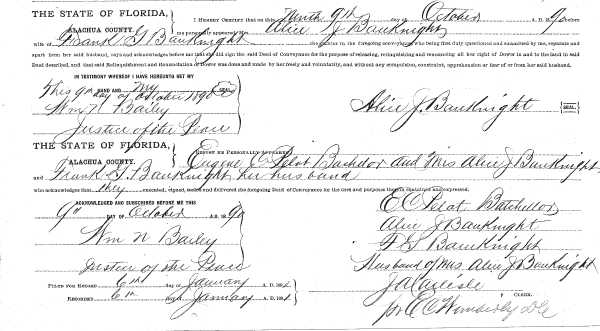 THE STATE OF FLORIDA,
ALACHUA COUNTY.
I HEREBY CERTIFY that on this Ninth 9th day of October A. D. 1890 before
me personally appeared Mrs Alice J BauKnight
wife of Frank G BauKnight grantor in the foregoing conveyance who being first duly questioned and examined by me, separate and
apart from her said husband, says and acknowledges before me that she did sign the said Deed of Conveyance for the purpose of releasing, relinquishing and reconveying all her right of Dower in and to the land in said
Deed described, and that said Relinquishment and Renunciation of Dower was done and made by her freely and voluntarily, and without any compulsion, constraint, apprehension or fear of or from her said husband.
IN TESTIMONY WHEREOF I HAVE HEREUNTO SET MY
HAND AND my SEAL
This 9th day of October 1890
Wm N Bailey
Justice of the Peace
Alice J. BauKnight SEAL.
THE STATE OF FLORIDA,
ALACHUA COUNTY.
BEFORE ME PERSONALLY APPEARED Eugene C. Pelot Bachelor and Mrs Alice J BauKnight,
and Frank G. BauKnight her husband
who acknowledges that they executed, signed, sealed and delivered the foregoing Deed of Conveyance for the uses and purposes therein contained and expressed.
ACKNOWLEDGED AND SUBSCRIBED BEFORE ME THIS
9th DAY OF October A.D. 1890
Wm N Bailey
Justice of the Peace
E C Pelot Batchellor
Alice J BauKnight
F G BauKnight
Husband of Mrs Alice J BauKnight
FILED FOR RECORD 6th day of January A.D. 1891
RECORDED 6th day of January A.D. 1891
J A Carlisle CLERK.
for E C Wimberly D C